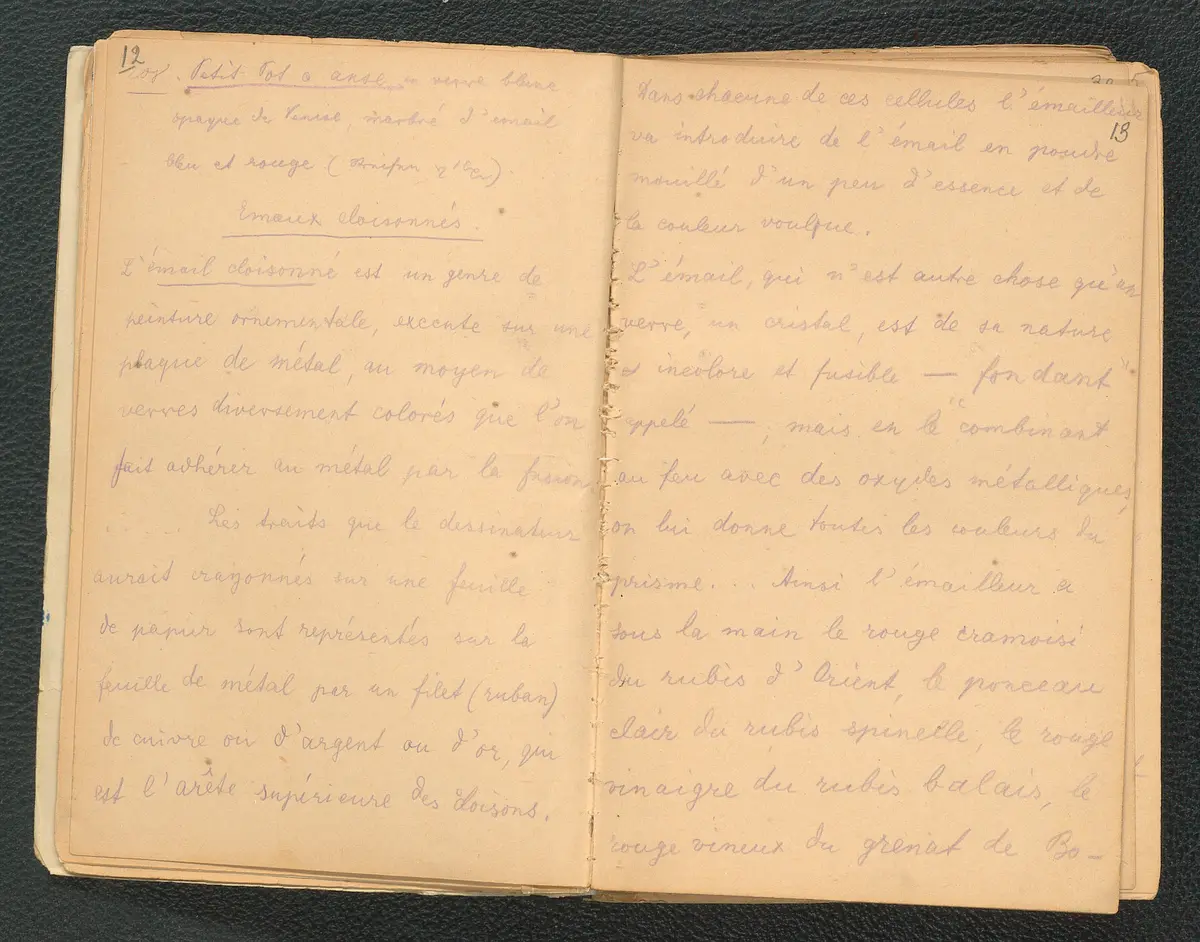 12
108. Petit Pot a anse, en verre blanc
opaque de Venise, marbré d'émail
bleu et rouge (
Emaux cloisonnés.
L'émail cloisonné est un genre de
peinture ornementale, executé sur une
plaque de métal, au moyen de
verres diversement colorés que l'on
fait adhérer au métal par la fusion
. . . . Les traits que le dessinateur
aurait crayonnés sur une feuille
de papier sont représentés sur la
feuille de métal par un filet (ruban)
de cuivre ou d'argent ou d'or, qui
est l'arête supérieure des cloisons.
13
Dans chacune de ces cellules l'émailleur
va introduire de l'émail en poudre
mouillé d'un peu d'essence et de
la couleur voulue.
L'émail, qui n'est autre chose qu'un
verre, un cristal, est de sa nature
incolore et fusible — "fondant"
appelé —, mais en le combinant
au feu avec des oxydes métalliques,
on lui donne toutes les couleurs du
prisme... Ainsi l'émailleur a
sous la main le rouge cramoisi
du rubis d'Orient, le ponceau
clair du rubis spinelle, le rouge
vinaigre du rubis balais, le
rouge vineux du grenat de Bo-